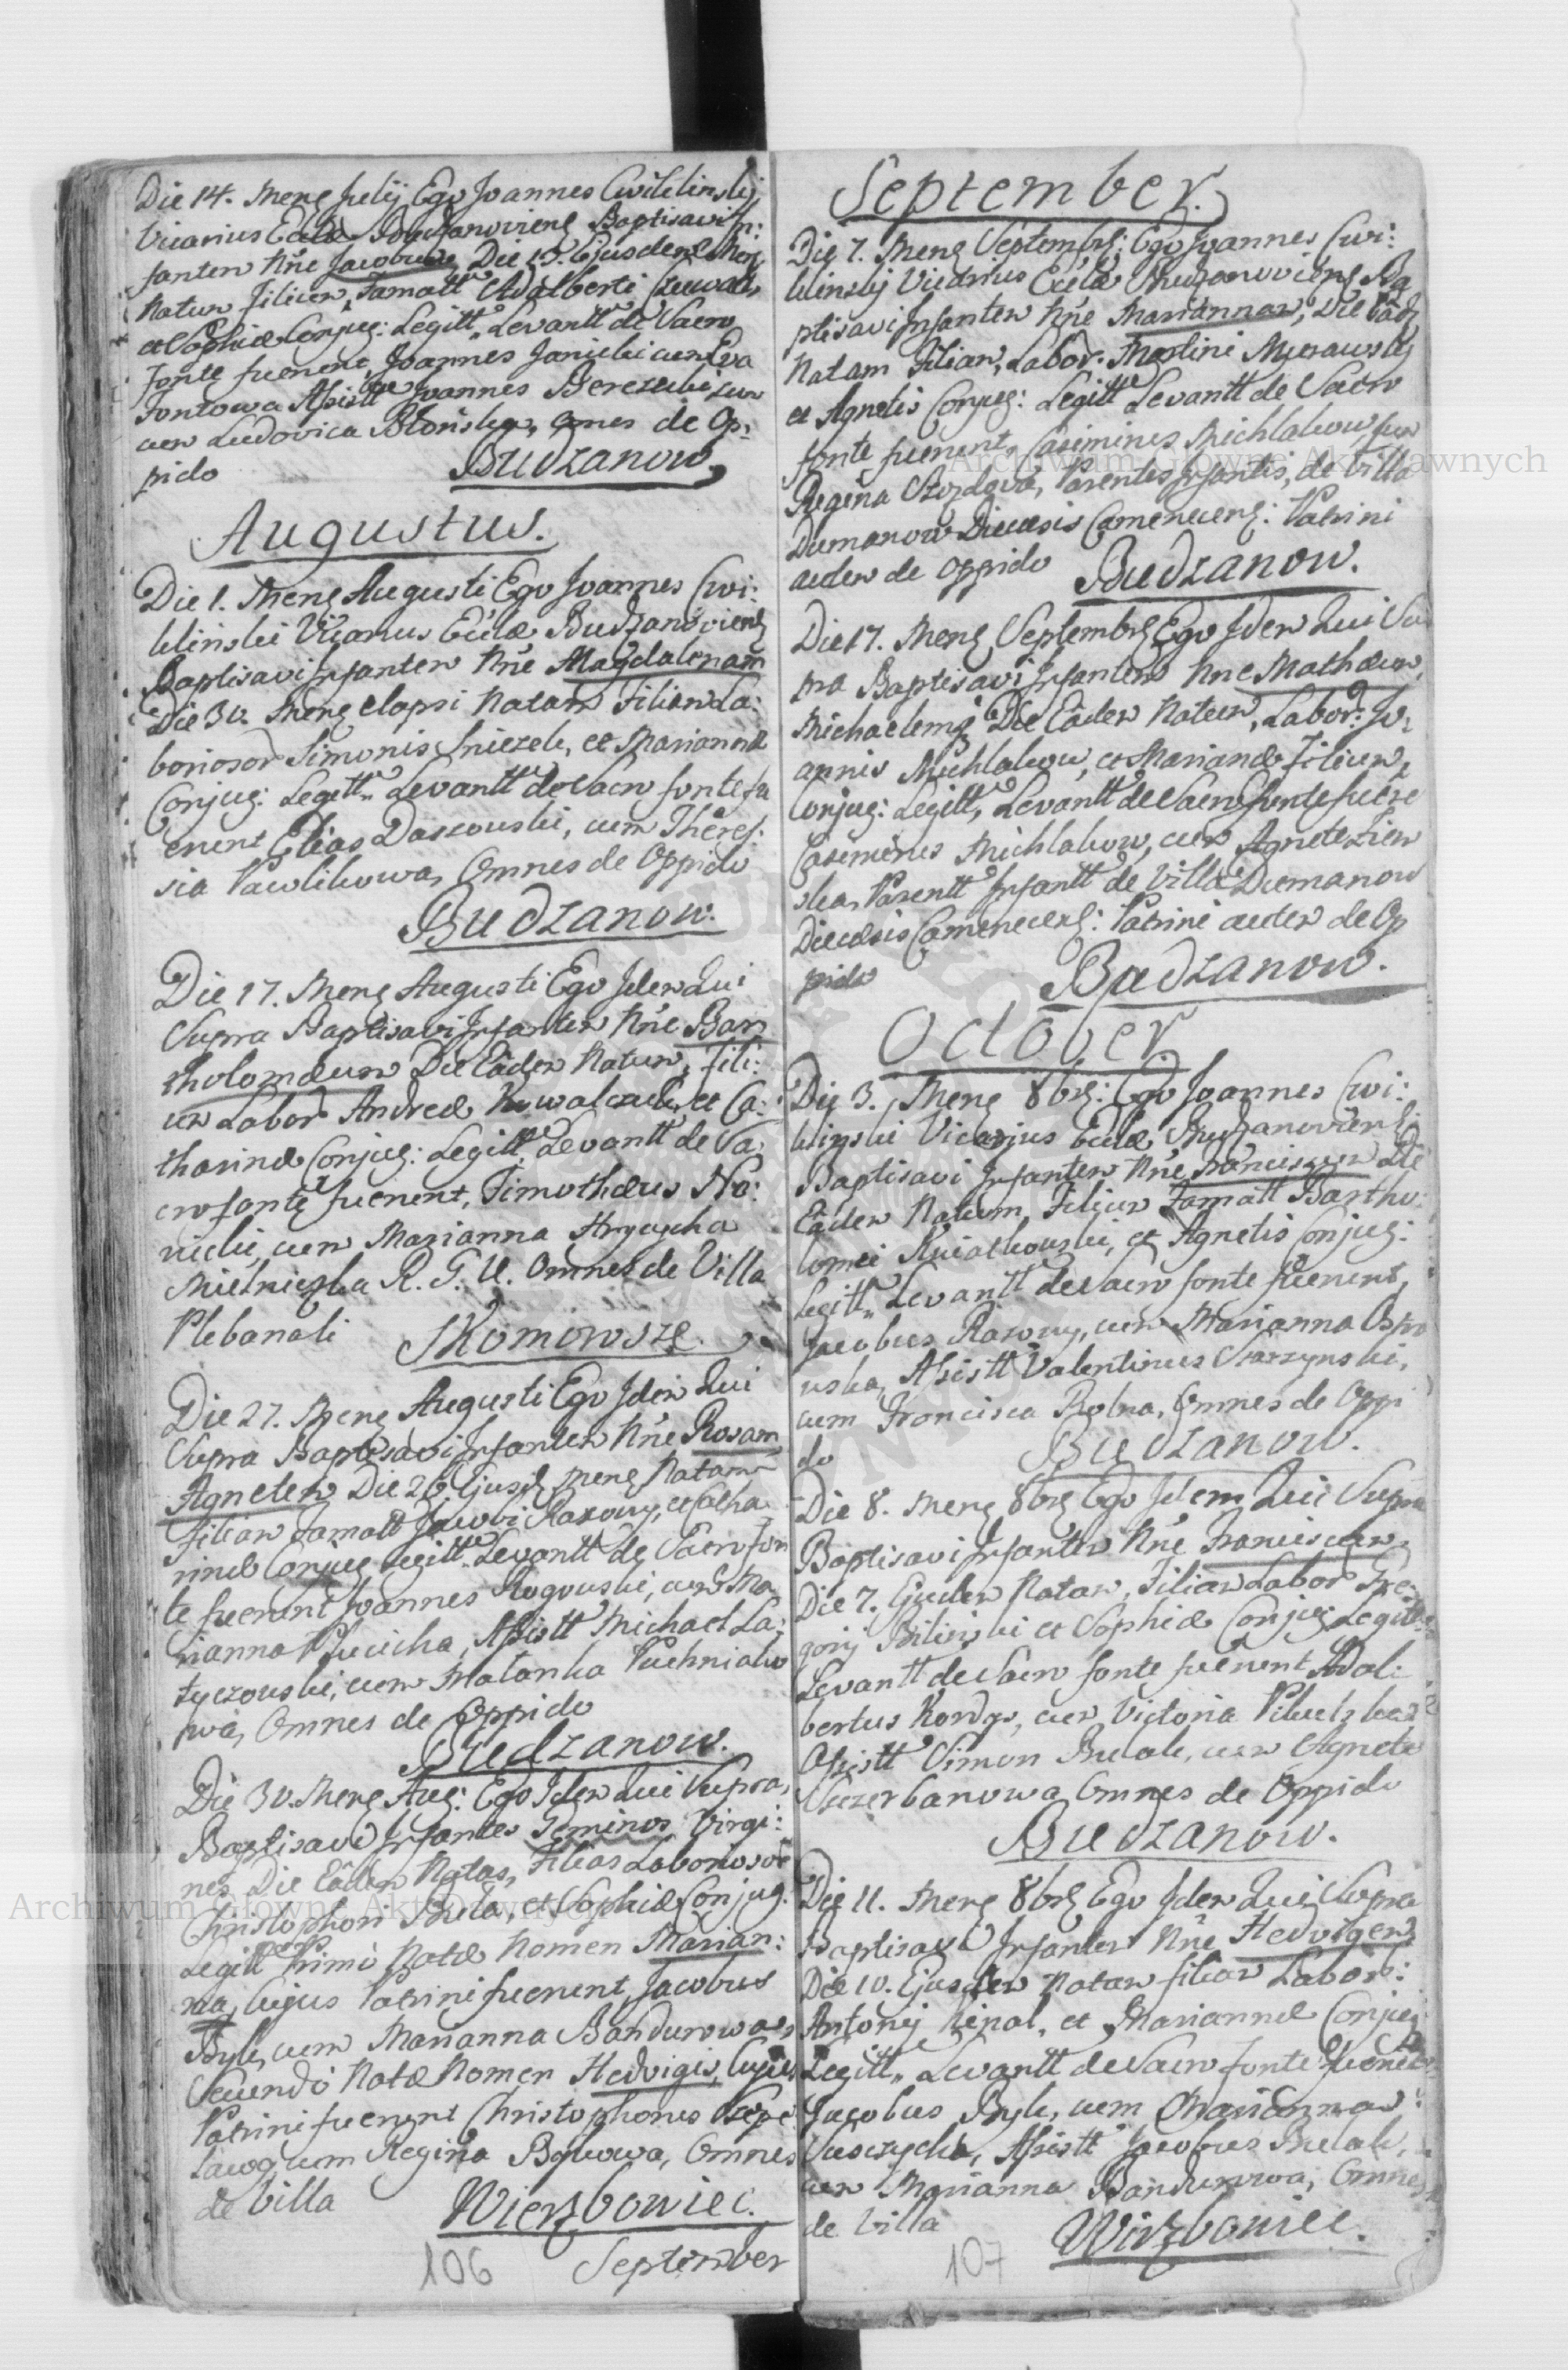 Die 14. Mens Julij Ego Joannes Cwiklinskij
Vicarius Eccla Budzanoviens Baptisavi In:
fantem Nne Jacobum, Die 13. Ejusdem Mens
Natum Filium, Famatt Adalberti
et Sophiæ Conjug: Legitt. Levantt de Sacro
Fonte fuerunt, Joannes Janicki cum Eva
Fontowa Assistt Joannes
cum Ludovica Blonska, omnes de Op:
pido Budzanow,
Augustus.
Die 1. Mens Augusti Ego Joannes Cwi:
klinski Vicarius Eccla Budzanoviens
Baptisavi Infantem Nne Magdalenam
Die 30. Mens elapsi Natam Filiam La:
boriosor Simonis Sniezek, et Mariannæ
Conjug: Legitt. Levantt de Sacro fonte fu
erunt Elias Daszouski, cum Theres:
sia Pawlikowa, Omnes de Oppido
Budzanow.
Die 17. Mens Augusti Ego Idem Qui
Supra Baptisavi Infantem Nne Bar
tholomæum Die Eadem Natum, Fili:
um Labor Andreæ Kowalczuk, et Ca:
tharinæ Conjug: Legitt. Levantt de Sa
cro fonte fuerunt, Timothæus No:
vicki, cum Marianna Hrycycha
Mielniczka R. G. U. Omnes de Villa
Plebanali Skomorosze.
Die 27. Mens Augusti Ego Idem Qui
Supra Baptisavi Infantem Nne Rosam
Agnetem Die 26 Ejusd Mens Natam
Filiam Famatt Jacobi Razowy, et Catha
rinæ Conjug Legitt. Levantt de Sacro fon
te fuerunt Joannes Rogouski, cum Ma
rianna Plucicha, Assistt Michael La:
tyczouski, cum Malanka Puchniako
wa, Omnes de Oppido
Budzanow.
Die 30. Mens Aug: Ego Idem Qui Supra,
Baptisavi Infantes Geminos Virgi:
nes Die Eadem Natas, Filias Laboriosor
Christophori Bula, et Sophiæ Conjug.
Legitt Primo Natæ Nomen Marian:
na, Cujus Patrini fuerunt, Jacobus
Byk, cum Marianna Bandurowa,
Secundo Natæ Nomen Hedvigis, Cujus
Patrini fuerunt Christophorus
cum Regina Bykowa, Omnes
de Villa Wierzbowiec.
September
106
September.
Die 7. Mens Septembrs: Ego Joannes Cwi:
klinskij Vicarius Eccla Budzanoviens Ba
ptisavi Infantem Nne Mariannam, Die Eadem
Natam Filiam, Labor: Martini Murawskij
et Agnetis Conjug: Legitt Levantt de Sacro
fonte fuerunt, Casimirus Michlakow, cum
Regina Parentes Infantis, de Villa
Dumanow Diæcesis Camenecens: Patrini
autem de Oppido Budzanow.
Die 17. Mens Septembrs Ego Idem Qui Su
pra Baptisavi Infantem Nne Mathæum,
Michaelemq Die Eadem Natum, Labor: Jo:
annis Michlakow, et Mariannæ Filium,
Conjug: Legitt, Levantt de Sacro fonte fuere
Casimirus Michlakow, cum Agnete Zien
ska, Parentt Infantt de Villa Dumanow
Diæcesis Camenecens: Patrini autem de Op
pido Budzanow.
October
Die 3. Mens 8brs: Ego Joannes Cwi:
klinski Vicarius Eccla Budzanoviens
Baptisavi Infantem Nne Franciscum Die
Eadem Natum, Filium Famatt Bartho:
lomei Kwiatkouski, et Agnetis Conjug:
Legitt. Levantt de Sacro fonte fuerunt,
Jacobus Razowy, cum Marianna
Assistt Valentinus Skarzynski,
cum Francisca Rolna, Omnes de Oppi
do Budzanow.
Die 8. Mens 8brs Ego Idem Qui Supra
Baptisavi Infantem Nne Franciscam
Die 7. Ejusdem Natam, Filiam Labor Gre:
gorij Bilinski et Sophiæ Conjug: Legitt.
Levantt de Sacro fonte fuerunt Adal:
bertus Kordys, cum Victoria
Assistt Simon Bulak, cum Agnete
Szczerbanowa Omnes de Oppido
Budzanow.
Die 11. Mens 8brs Ego Idem Qui Supra
Baptisavi Infantem Nne Hedvigem
Die 10. Ejusdem Natam filiam Labor:
Antonij Kinal, et Mariannæ Conjug
Legitt. Levantt de Sacro fonte fuerunt
Jacobus Byk, cum Marianna
Assistt Jacobus Bulak,
cum Marianna Bandurowa, Omnes
de Villa Wirzbowiec.
107
Archiwum Główne Akt Dawnych
Archiwum Główne Akt Dawnych